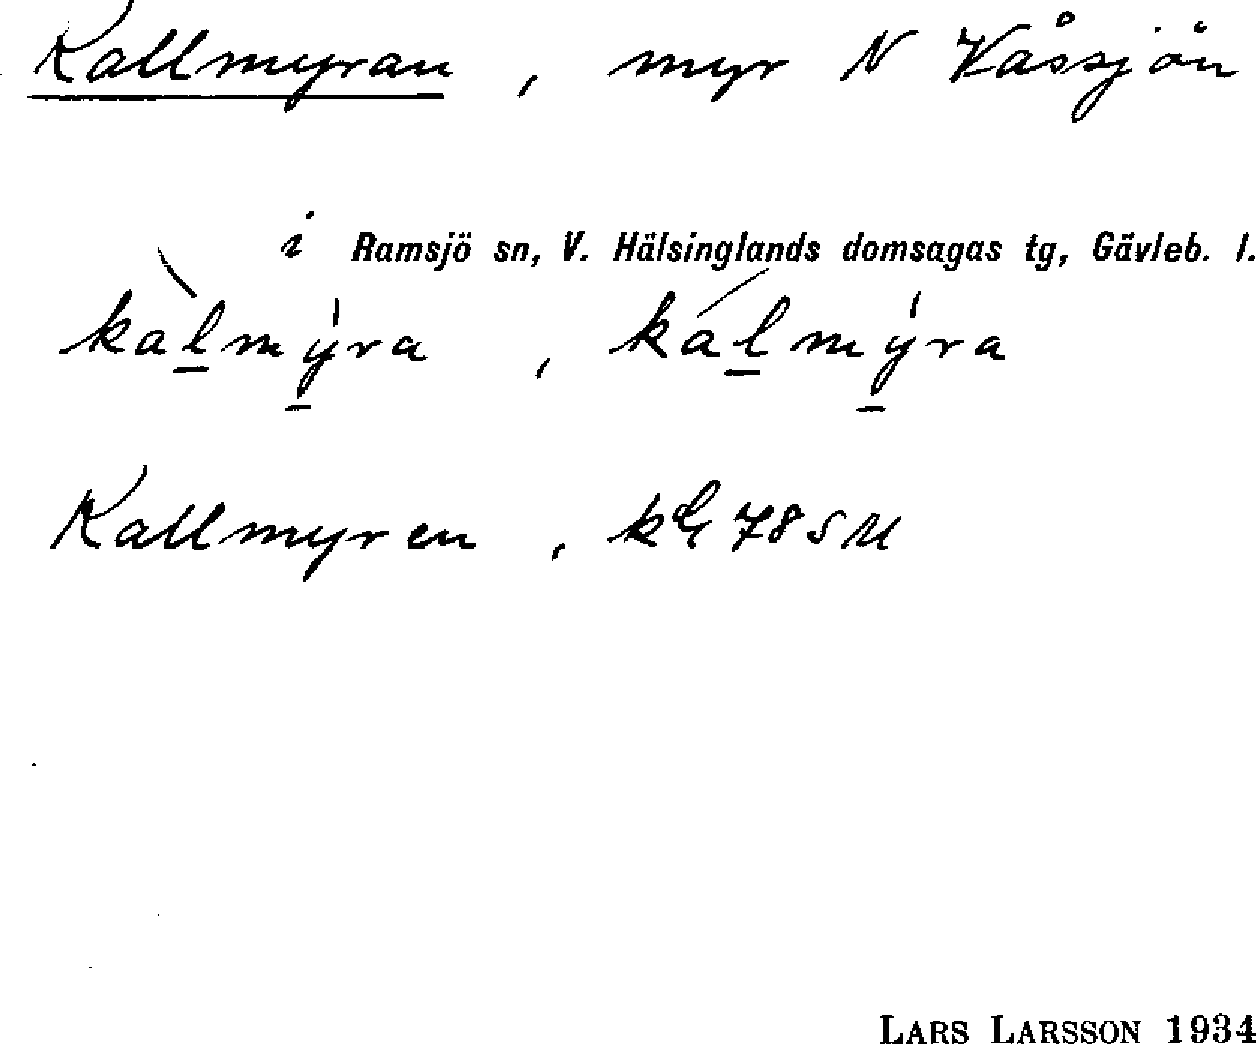 Kallmyran, myr N Våssjön
i Ramsjö sn, V. Hälsinglands domsagas tg, Gävleb. l.
kàl̲mý̲ra, kál̲mý̲ra
Kallmyren,
LARS LARSSON 1934